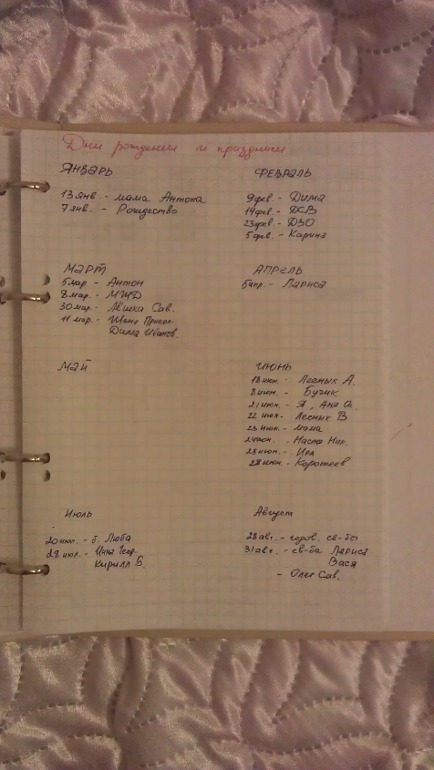 Дни рождения и праздники
ЯНВАРЬ
13 янв. - мама Антона
7 янв. - Рождество
ФЕВРАЛЬ
9 фев. - Дима
14 фев. - ДСВ
23 фев. - ДЗО
5 фев. - Карина
МАРТ
5 мар - Антон
8 мар. - МЖД
30 мар. - Лёшка Сав.
11 мар. - Женя
Дима Иванов.
АПРЕЛЬ
5 апр. - Лариса
МАЙ
ИЮНЬ
18 июн. - Лесных А.
8 июн. - Бучик
21 июн. - Я, Аня О.
22 июн. - Лесных В
23 июн. - мама
24 июн. - Настя Ник.
25 июн. - Ира
28 июн. - Коротеев
Июль
20 июл. - б. Люба
28 июл. - Инна Геор.
Кирилл Б.
Август
28 авг. - годов. св-бы
31 авг. - св-ба Лариса
Вася
- Олег Сав.